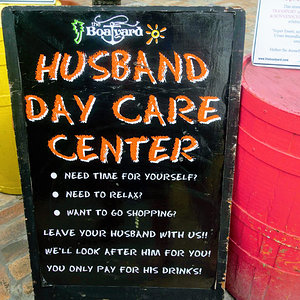 the
Boatyard
HUSBAND
DAY CARE
CENTER
• NEED TIME FOR YOURSELF?
• NEED TO RELAX?
• WANT TO GO SHOPPING?
LEAVE YOUR HUSBAND WITH US!!
WE'LL LOOK AFTER HIM FOR YOU!
YOU ONLY PAY FOR HIS DRINKS!